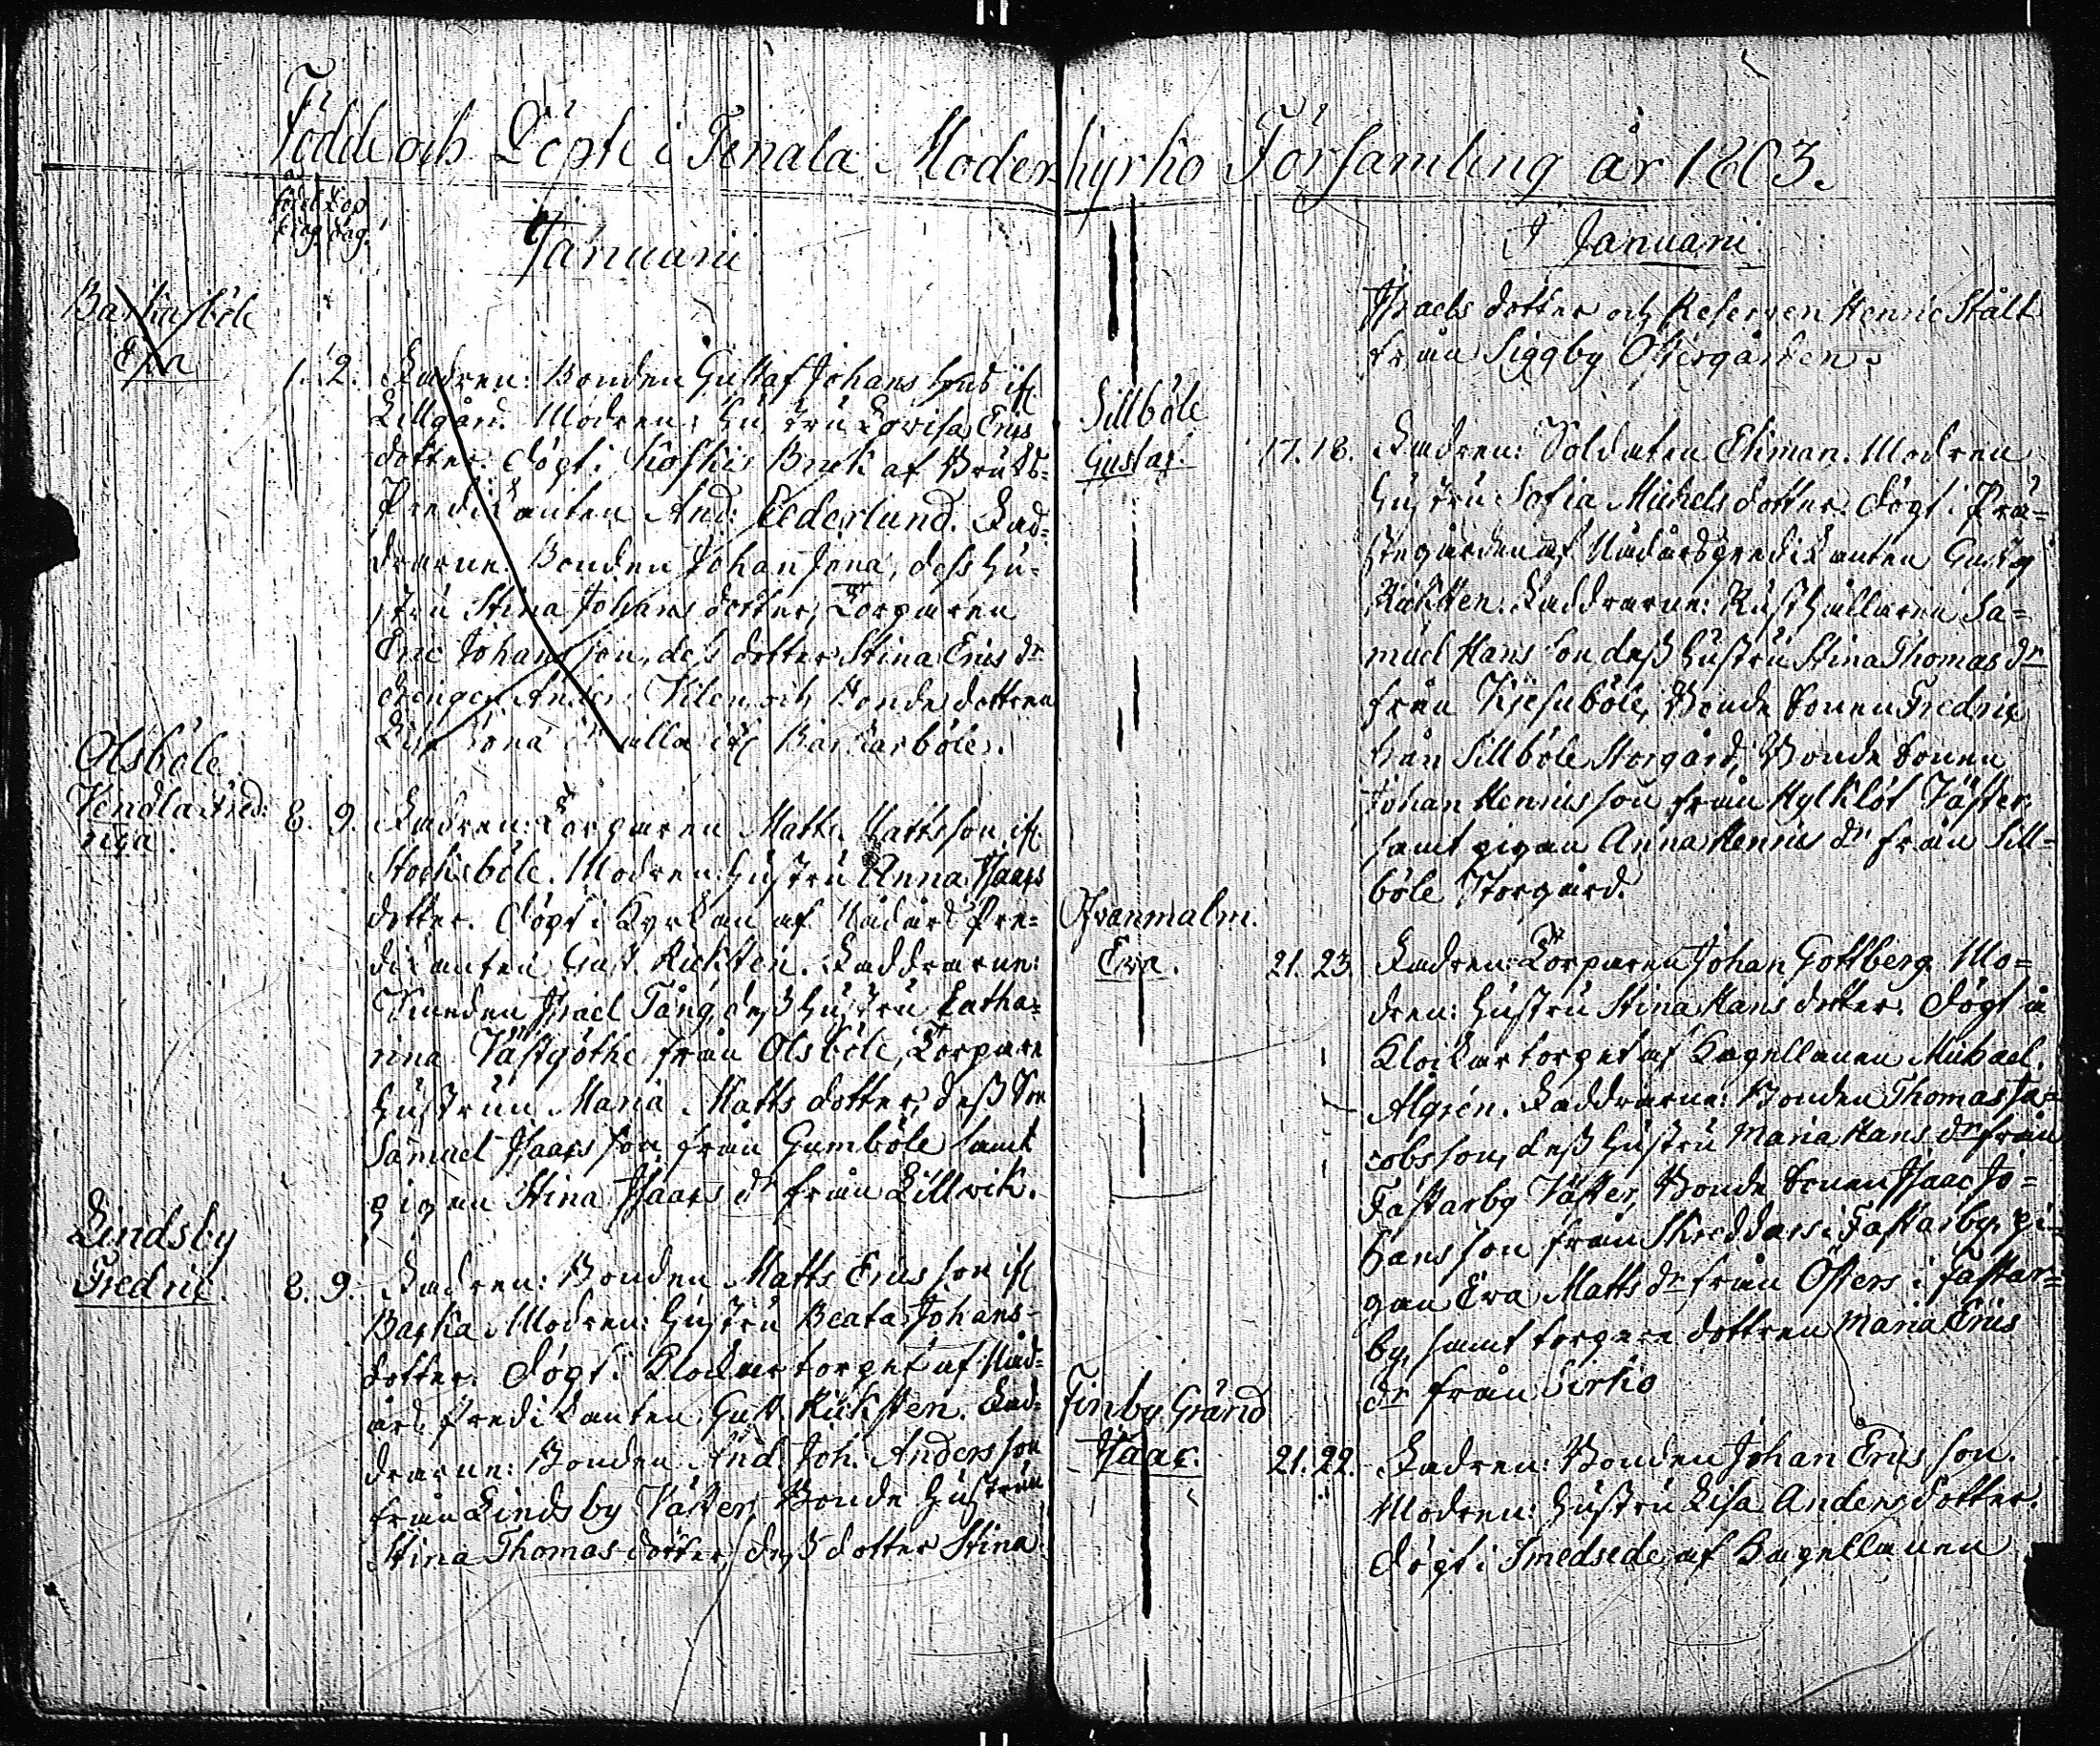 Födde och Döpte i Tenala Moderkyrko Församling år 1803.
föd. Döp
dag. dag.
Januarii
Barkarböle
Eva
1. 2. Fadren: Bonden Gustaf Johans Son ifr.
Lillgård. Modren: Hustru Lovisa Erics
dotter. Döpt i Koskis Bruk af Bruks-
Predikanten And: Cederlund. Fad-
drarne: Bonden Johan Jöna, dess Hu-
stru Stina Johans dotter, Torparen
Eric Johansson, dess dotter Stina Erics dr
drengen Anders och Bonde dottren
Lisa Jöna alla ifr. Barkarböle.
Olsböle
Vendla Fred-
rica.
8. 9. Fadren: Torparen Matts Mattsson ifr.
Stocksböle. Modren: Hustru Anna Isaacs
dotter. Döpt i Kyrkan af Nådårs Pre-
dikanten Gust. Rickstén. Faddrarne:
Smeden Israel Tång, dess Hustru Catha-
rina Västgöthe från Olsböle, Torpare
Hustrun Maria Matts dotter, dess Son
Samuel Isaacs son från Gumböle samt
pigan Stina Isaacs dr från Lillvik.
Lindsby
Fredric.
8. 9. Fadren: Bonden Matts Erics son ifr
Baska. Modren: Hustru Beata Johans-
dotter. Döpt i Klockar torpet af Nåd-
års Predikanten Gust. Rickstén. Fad-
drarne: Bonden And. Joh. Andersson
från Lindsby Väster, Bonde Hustrun
Stina Thomas dotter, dess dotter Stina
I Januarii
Israels dotter och Reserven Henric Stålt
från Siggby Östergården.
Sillböle
Gustaf.
17. 18. Fadren: Soldaten Ekman. Modren
Hustru Sofia Michels dotter. Döpt i Prä-
stegården af Nådårspredikanten Gustaf
Rickstén. Faddrarne: Rusthållaren Sa-
muel Hans son, dess Hustru Stina Thomas dr
från Kjesuböle, Bonde Sonen Fredric
från Sillböle Storgård, Bonde Sonen
Johan Henricsson från Hylklöt Väster,
samt pigan Anna Henrics dr från Sill-
böle Storgård.
Ofvanmalm.
Eva.
21. 23. Fadren: Torparen Johan Gottberg. Mo-
dren: Hustru Stina Hans dotter. Döpt i
Klockartorpet af Kapellanen Michael
Algrén. Faddrarne: Bonden Thomas Ja-
cobsson, dess Hustru Maria Hans dr från
Fastarby Väster, Bonde Sonen Isaac Jo-
hansson från Skreddars i Fastarby, pi-
gan Eva Matts dr från Östers i Fastar-
by, samt torpare dottren Maria Erics
dr från Sirkio
Finby Gränd
Isaac.
21. 22. Fadren: Bonden Johan Erics son.
Modren: Hustru Lisa Anders dotter.
Döpt i Smedsede af Kapellanen